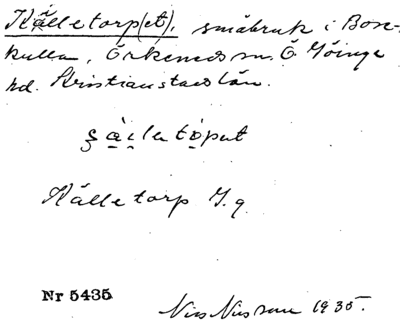 Källetorp(et), småbruk i Bose-
kulla, Örkeneds sn. Ö Göinge
hd. Kristianstads län.
Källetorp J. g.
Nr 5435
Nils Nilsson 1935.